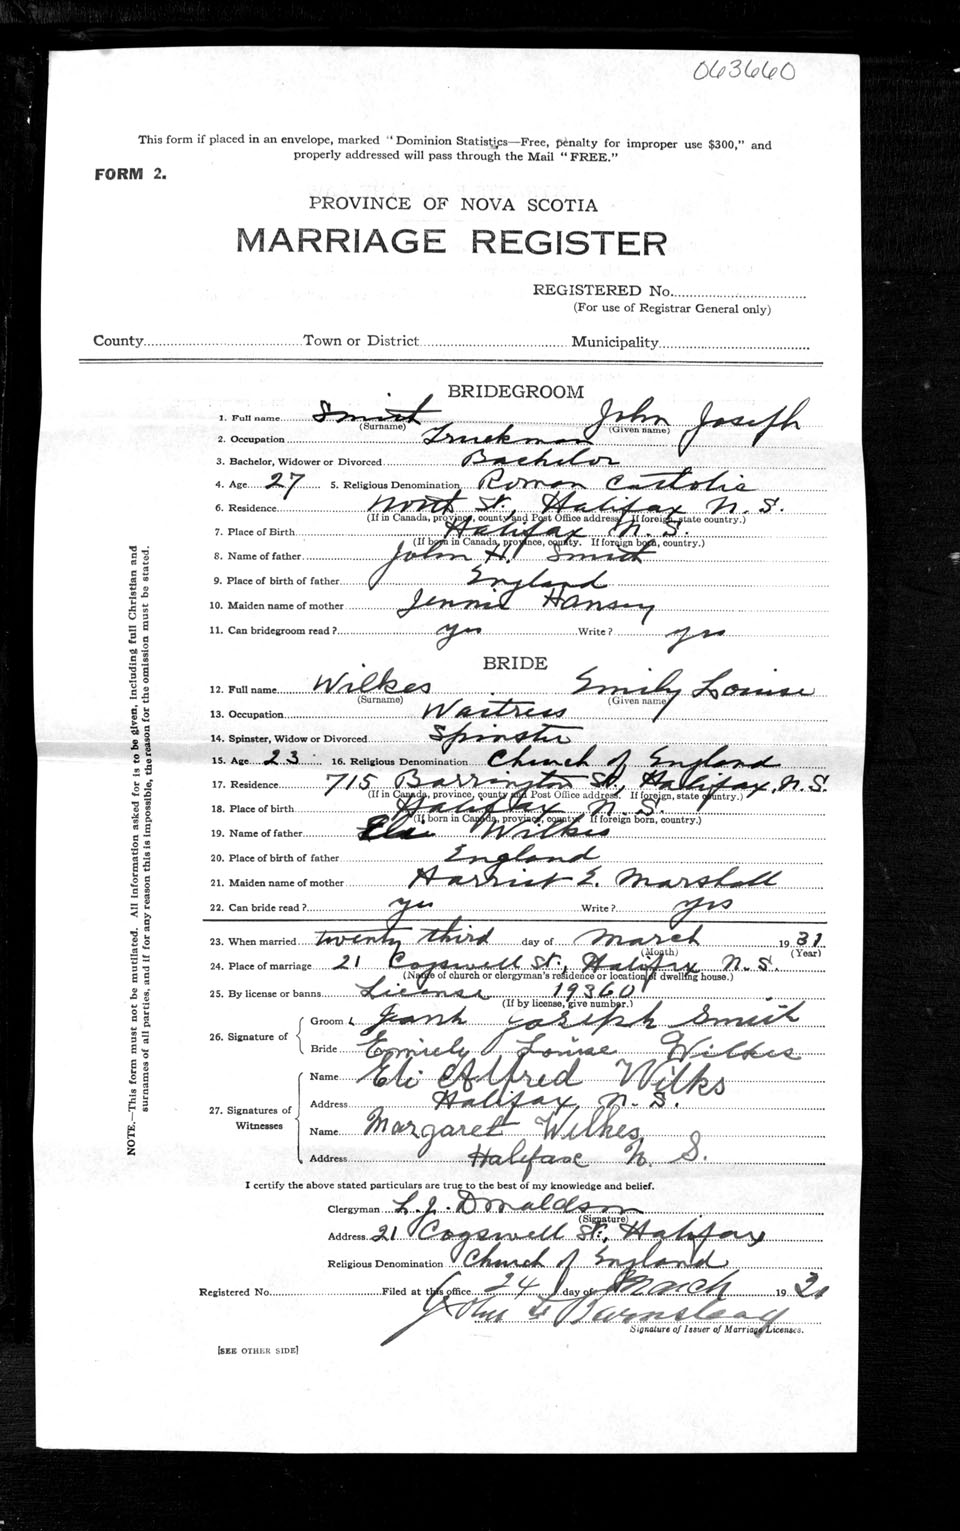 063660
This form if placed in an envelope, marked "Dominion Statistics—Free, penalty for improper use $300," and
properly addressed will pass through the Mail "FREE."
FORM 2.
PROVINCE OF NOVA SCOTIA
MARRIAGE REGISTER
REGISTERED No.
(For use of Registrar General only)
County Town or District Municipality
BRIDEGROOM
1. Full name Smith John Joseph
(Surname) (Given name)
2. Occupation Truckman
3. Bachelor, Widower or Divorced Bachelor
4. Age 27 5. Religious Denomination Roman Catholic
6. Residence North St., Halifax N. S.
(If in Canada, province, county and Post Office address. If foreign, state country.)
7. Place of Birth Halifax N. S.
(If born in Canada, province, county. If foreign born, country.)
8. Name of father John H. Smith
9. Place of birth of father England
10. Maiden name of mother Jennie Hansey
11. Can bridegroom read? yes Write? yes
BRIDE
12. Full name Wilkes Emily Louise
(Surname) (Given name)
13. Occupation Waitress
14. Spinster, Widow or Divorced Spinster
15. Age 23 16. Religious Denomination Church of England
17. Residence 715 Barrington St., Halifax, N. S.
(If in Canada, province, county and Post Office address. If foreign, state country.)
18. Place of birth Halifax N. S.
(If born in Canada, province, county. If foreign born, country.)
19. Name of father Wilkes
20. Place of birth of father England
21. Maiden name of mother Harriet E. Marshall
22. Can bride read? yes Write? yes
23. When married twenty third day of March 1931
(Month) (Year)
24. Place of marriage 21 Cogswell St., Halifax N. S.
(Name of church or clergyman's residence or location of dwelling house.)
25. By license or banns License 19360
(If by license, give number.)
26. Signature of Groom Joseph Smith
Bride Emiely Louise Wilkes
27. Signatures of Witnesses
Name Eli Alfred Wilks
Address Halifax, N. S.
Name Margaret Wilkes
Address Halifax N. S.
I certify the above stated particulars are true to the best of my knowledge and belief.
Clergyman L. J. Donaldson
(Signature)
Address 21 Cogswell St., Halifax
Religious Denomination Church of England
Registered No. Filed at this office 24 day of March 1931
John Barnsteay
Signature of Issuer of Marriage Licenses.
[SEE OTHER SIDE]
NOTE.—This form must not be mutilated. All information asked for is to be given, including full Christian and
surnames of all parties, and if for any reason this is impossible, the reason for the omission must be stated.